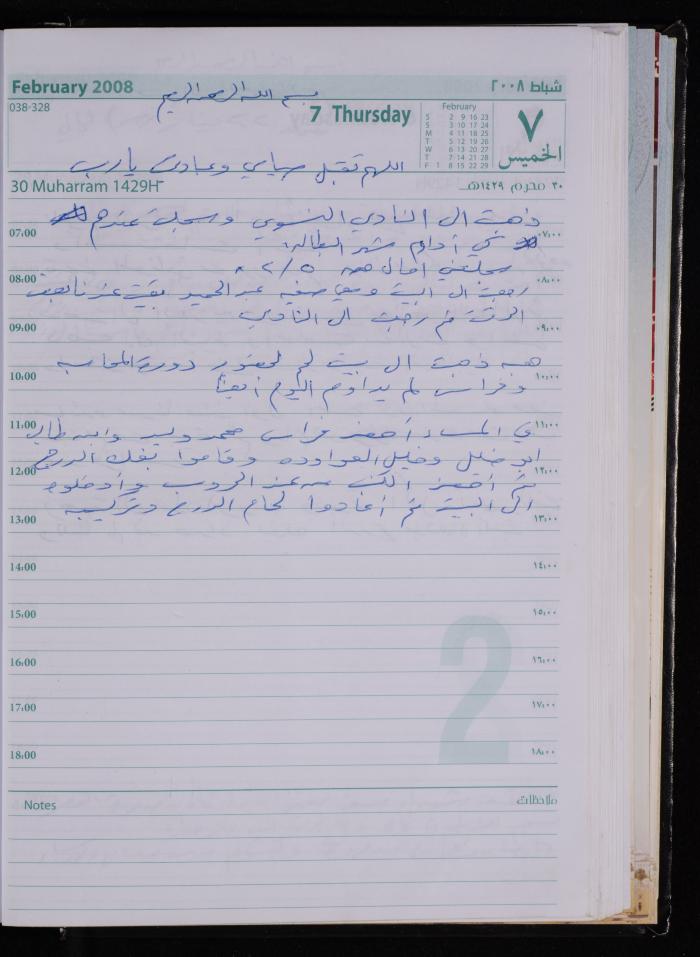 February 2008
شباط ٢٠٠٨
بسم الله الرحمن الرحيم
038-328
7 Thursday
February
S 2 9 16 23
S 3 10 17 24
M 4 11 18 25
T 5 12 19 26
W 6 13 20 27
T 7 14 21 28
F 1 8 15 22 29
٧
الخميس
اللهم تقبل صيامي وعبادتي يارب
30 Muharram 1429H
٣٠ محرم ١٤٢٩هـ
ذهبت الى النادي النسوي وسجلت عندهم
07:00
٠٧:٠٠
لكي أداوم شهر البطالة
سجلتني امال ٢/٥
08:00
٠٨:٠٠
رجعت الى البيت ومعي صفيه عبد الحميد بقيت عندنا
09:00
٠٩:٠٠
الوقت ثم رجعت الى النادي
ذهبت الى بيت لحم لحضور دورة المحاسبه
10:00
١٠:٠٠
وفراس لم يداوم اليوم أيضاً
11:00
١١:٠٠
في المساء أحضر فراس محمد وليد وابنه طالب
ابو خليل وخليل العواوده وقاموا بفك الدرج
12:00
١٢:٠٠
ثم أحضر الكنب من عند الدروب وأدخلوه
الى البيت ثم أعادوا لحام الدرج وتركيبه
13:00
١٣:٠٠
14:00
١٤:٠٠
15:00
١٥:٠٠
16:00
١٦:٠٠
17:00
١٧:٠٠
18:00
١٨:٠٠
2
Notes
ملاحظات